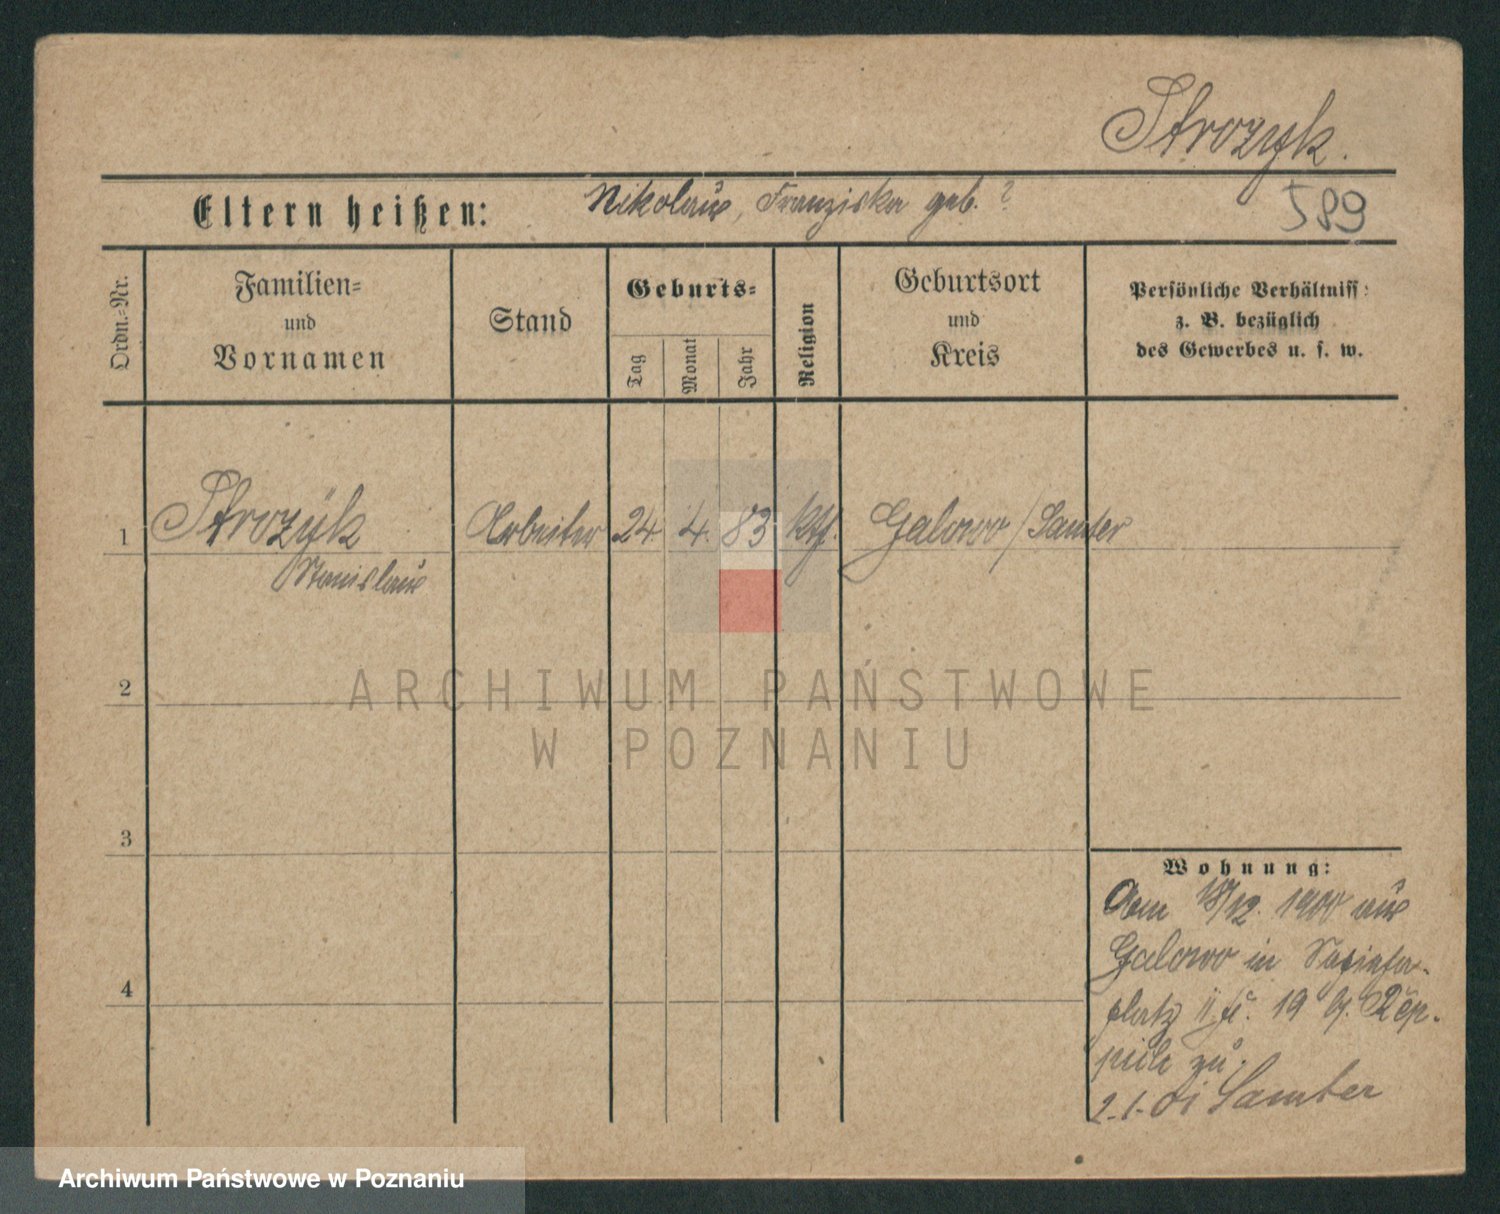 Strozyk.
Eltern heißen: Nikolaus, Franziska geb. ?
589
Ordn.-Nr.
Familien-
und
Vornamen
Stand
Geburts-
Tag
Monat
Jahr
Religion
Geburtsort
und
Kreis
Persönliche Verhältniss:
z. B. bezüglich
des Gewerbes u. s. w.
1 Strozÿk Arbeiter 24. 4. 83 kth. Galowo / Samter
Stanislaus
2
3
4
Wohnung:
Am 18/12. 1900 aus
Galowo in
platz 19 b.
zu.
2.1.01 Samter
ARCHIWUM PAŃSTWOWE
W POZNANIU
Archiwum Państwowe w Poznaniu